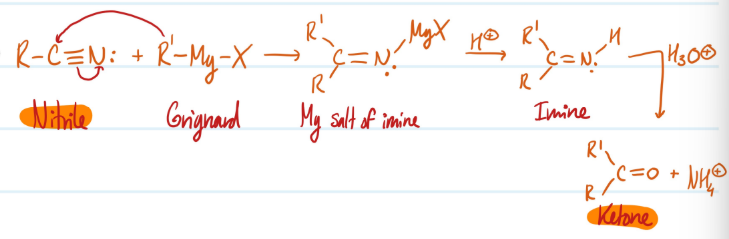 R-C≡N: + R'-Mg-X → R' R C=N. MgX H⊕ → R' R C=N. H H₃O⊕
Nitrile Grignard Mg salt of imine Imine
R' R C=O + NH₄⊕
Ketone